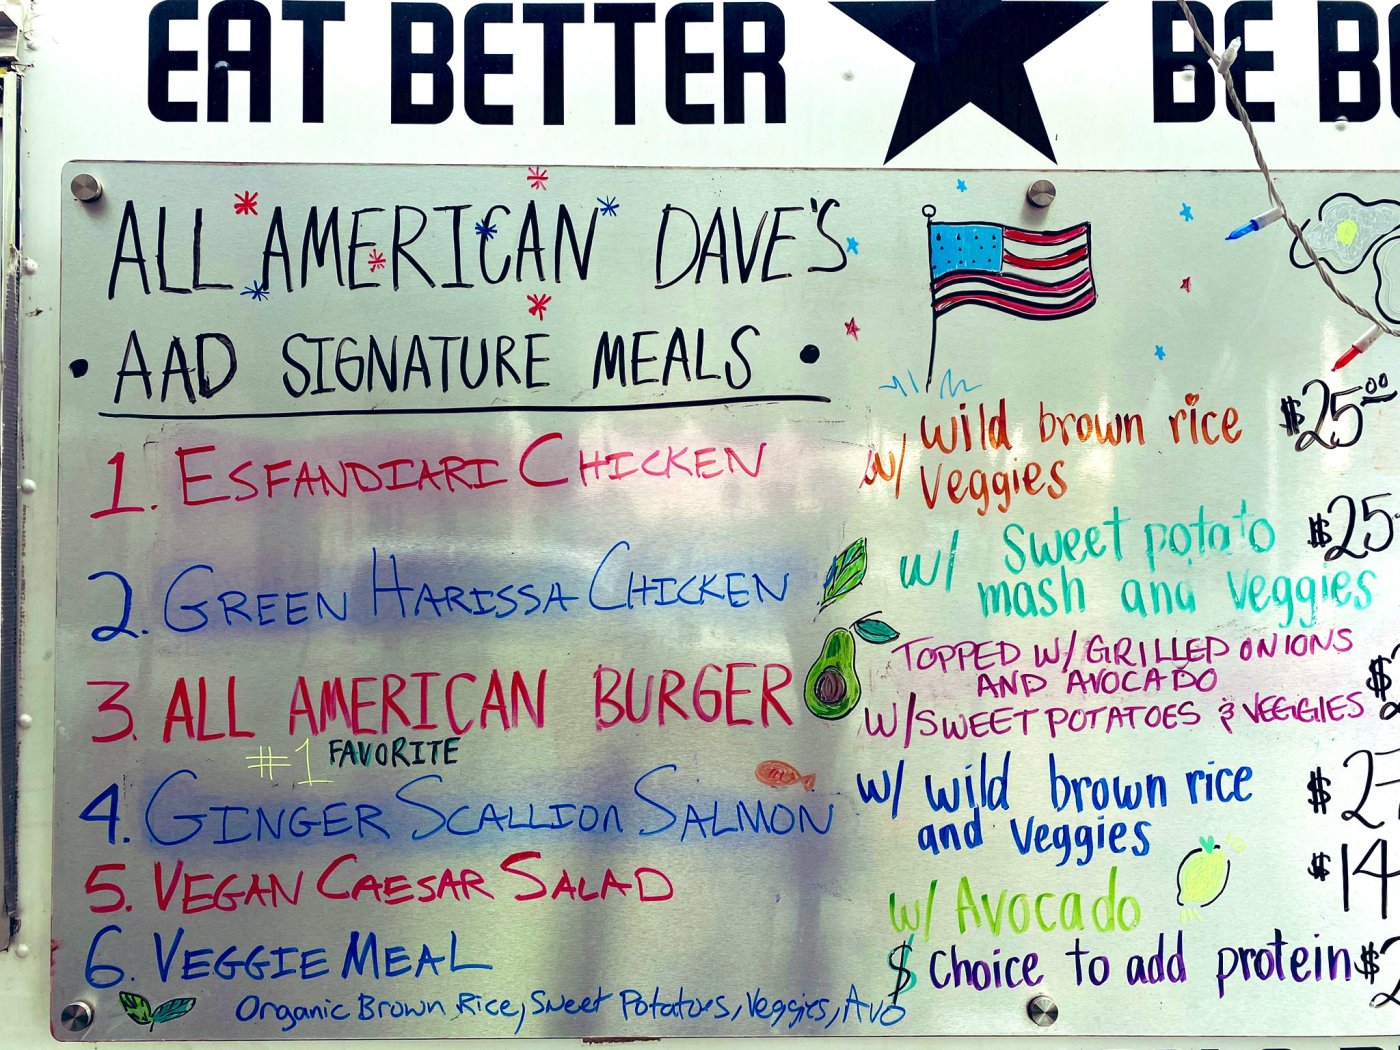 EAT BETTER ★ BE B
ALL AMERICAN DAVE'S
• AAD SIGNATURE MEALS •
1. ESFANDIARI CHICKEN w/ wild brown rice $25.00
Veggies
2. GREEN HARISSA CHICKEN w/ Sweet potato $25
mash and Veggies
3. ALL AMERICAN BURGER TOPPED W/ GRILLED ONIONS
AND AVOCADO
W/ SWEET POTATOES & VEGGIES
#1 FAVORITE
4. GINGER SCALLION SALMON w/ wild brown rice
and Veggies
5. VEGAN CAESAR SALAD w/ Avocado $14
6. VEGGIE MEAL $ Choice to add protein
Organic Brown Rice, Sweet Potatoes, Veggies, Avo